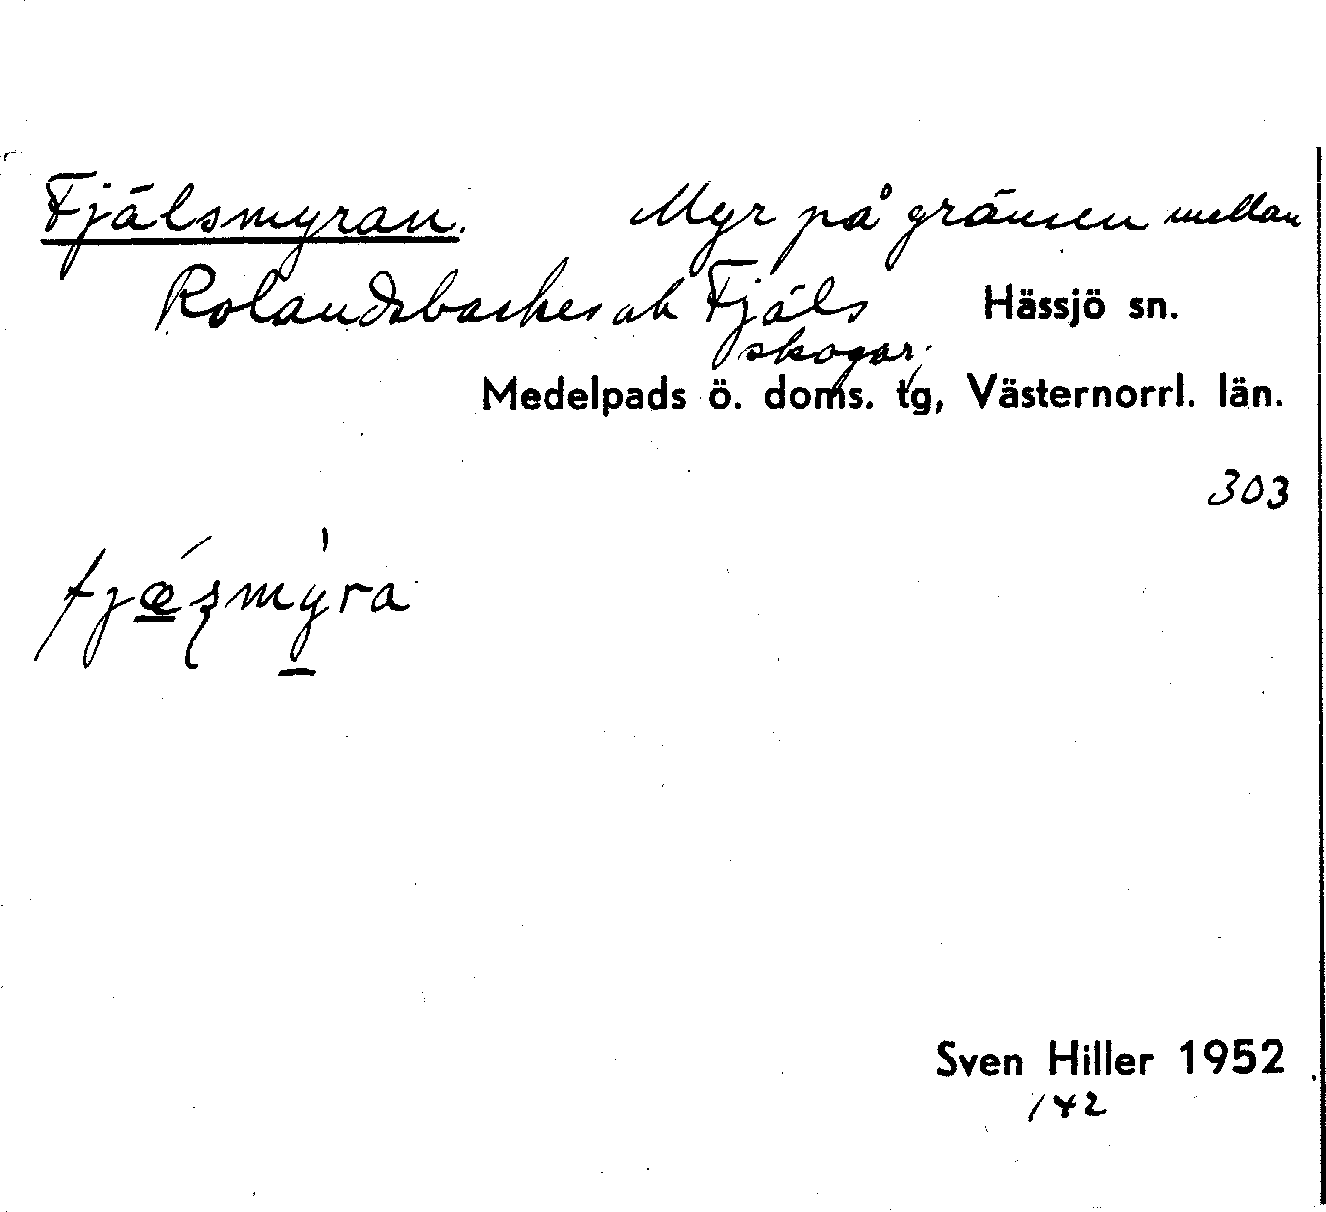 Fjälsmyran. Myr på gränsen mellan
Rolandsbackes och Fjäls Hässjö sn.
skogar.
Medelpads ö. doms. tg, Västernorrl. län.
303
Sven Hiller 1952
142